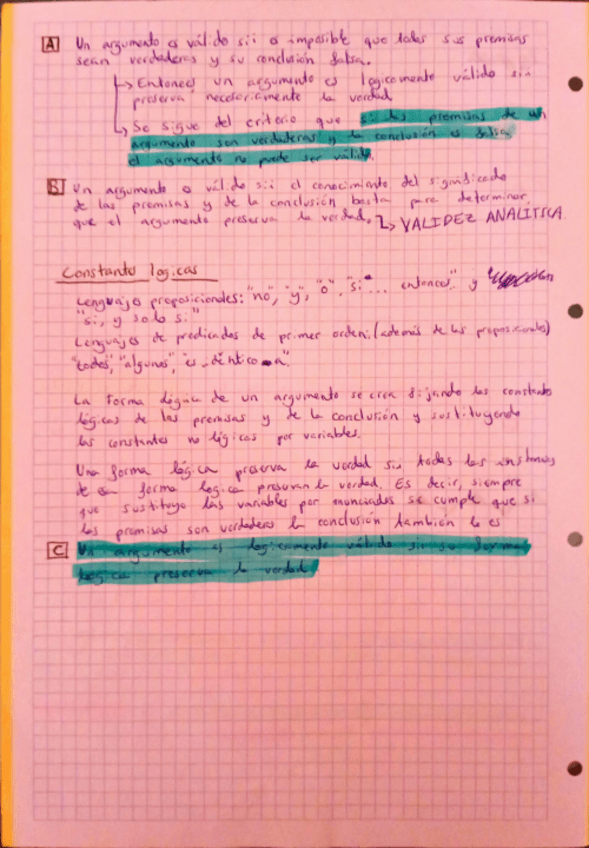 A Un argumento es válido sii es imposible que todas sus premisas
sean verdaderas y su conclusión falsa.
↳ Entonces un argumento es logicamente válido sii
preserva necesariamente la verdad
↳ Se sigue del criterio que si las premisas de un
argumento son verdaderas y la conclusión es falsa
el argumento no puede ser válido.
B Un argumento es válido sii el conocimiento del significado
de las premisas y de la conclusión basta para determinar
que el argumento preserva la verdad. ↳ VALIDEZ ANALÍTICA.
Constantes logicas
Lenguajes proposicionales: "no", "y", "o", "si ... entonces" y
"si, y solo si"
Lenguajes de predicados de primer orden: (además de las proposicionales)
"todos", "algunos", "es idéntico a".
La forma lógica de un argumento se crea fijando las constantes
lógicas de las premisas y de la conclusión y sustituyendo
las constantes no lógicas por variables.
Una forma lógica preserva la verdad sii todas las instancias
de esa forma logica preservan la verdad. Es decir, siempre
que sustituyo las variables por enunciados se cumple que si
las premisas son verdaderas la conclusión también lo es
C Un argumento es logicamente válido sii su forma
lógica preserva la verdad.